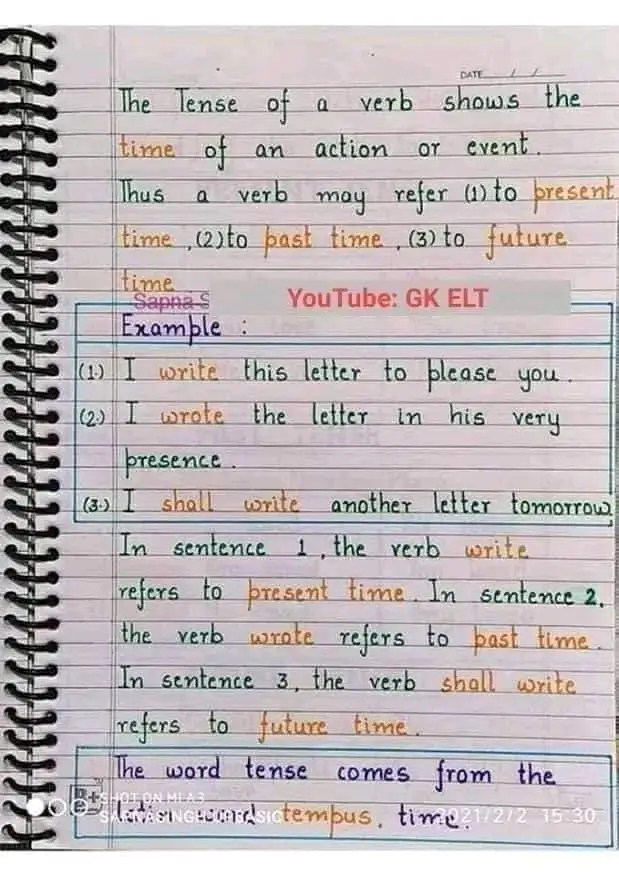 DATE / /
The Tense of a verb shows the
time of an action or event.
Thus a verb may refer (1) to present
time, (2) to past time, (3) to future
time
Sapna S
YouTube: GK ELT
Example :
(1.) I write this letter to please you.
(2.) I wrote the letter in his very
presence.
(3.) I shall write another letter tomorrow
In sentence 1, the verb write
refers to present time. In sentence 2,
the verb wrote refers to past time.
In sentence 3, the verb shall write
refers to future time.
The word tense comes from the
SHOT ON MI A3
Latin word tempus, time.
2021/2/2 15:30